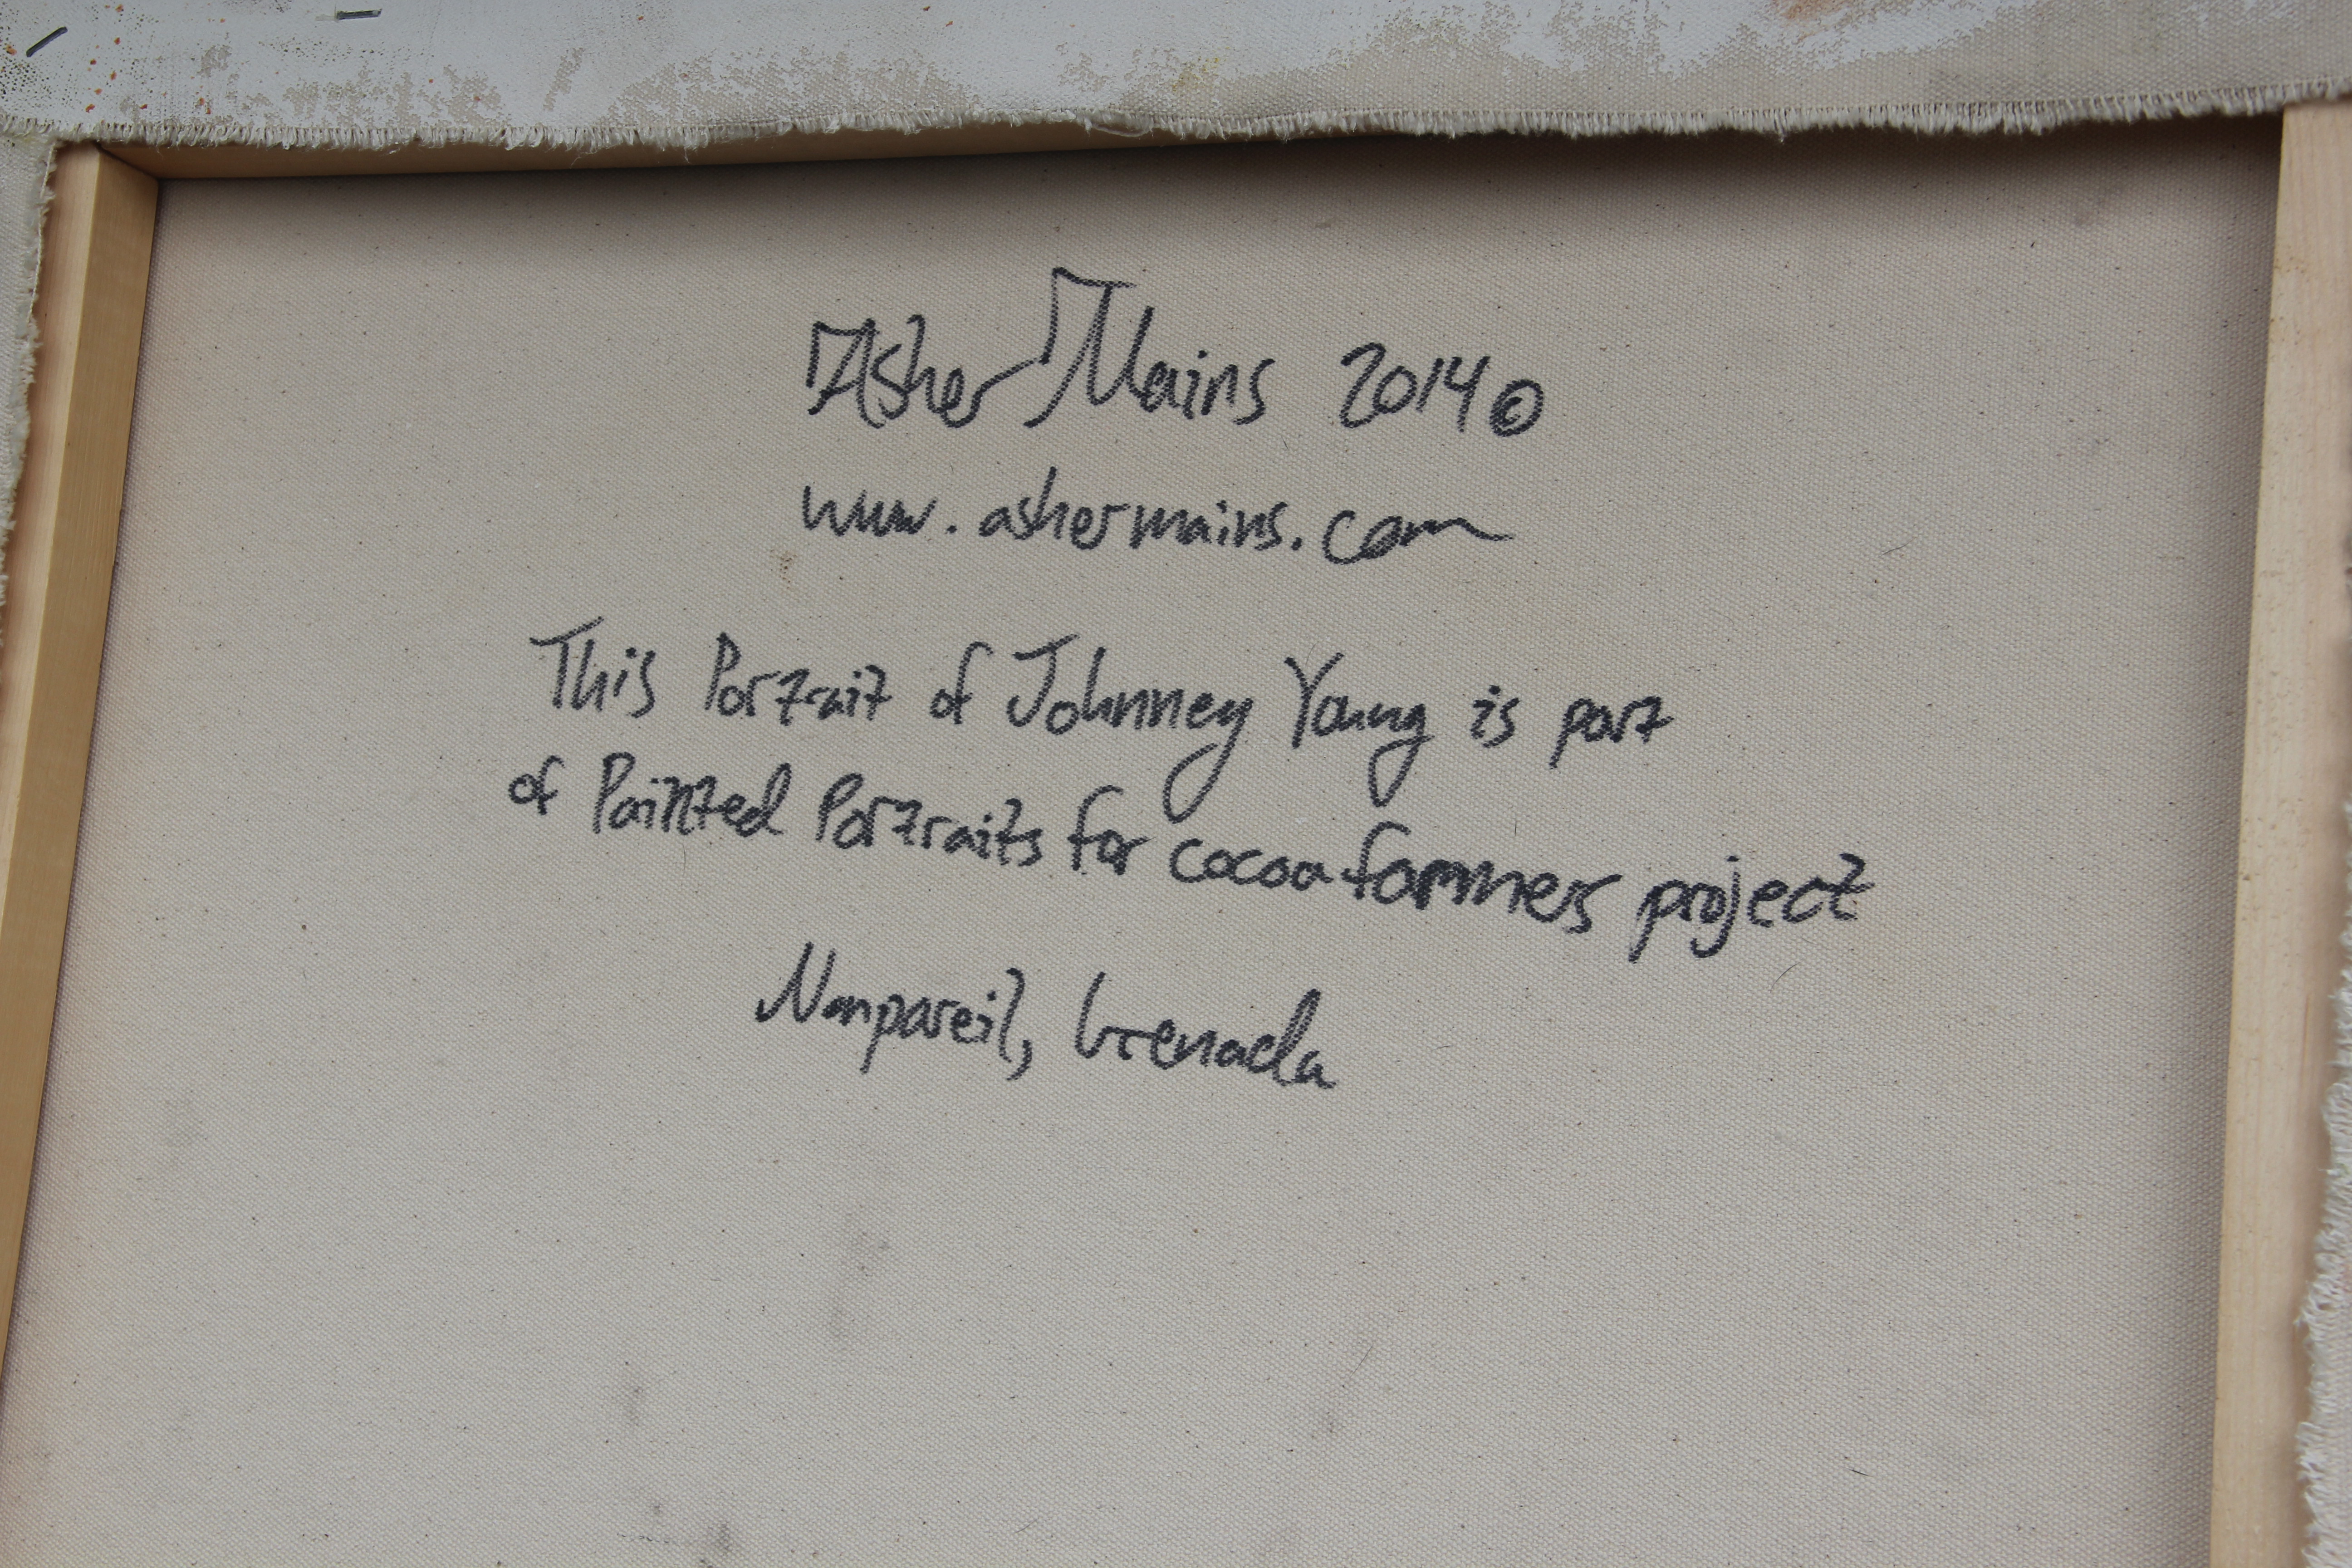 Asher Mains 2014 ©
www.ashermains.com
This Portrait of Johnney Young is part
of Painted Portraits for cocoa farmers project
Nonpareil, Grenada